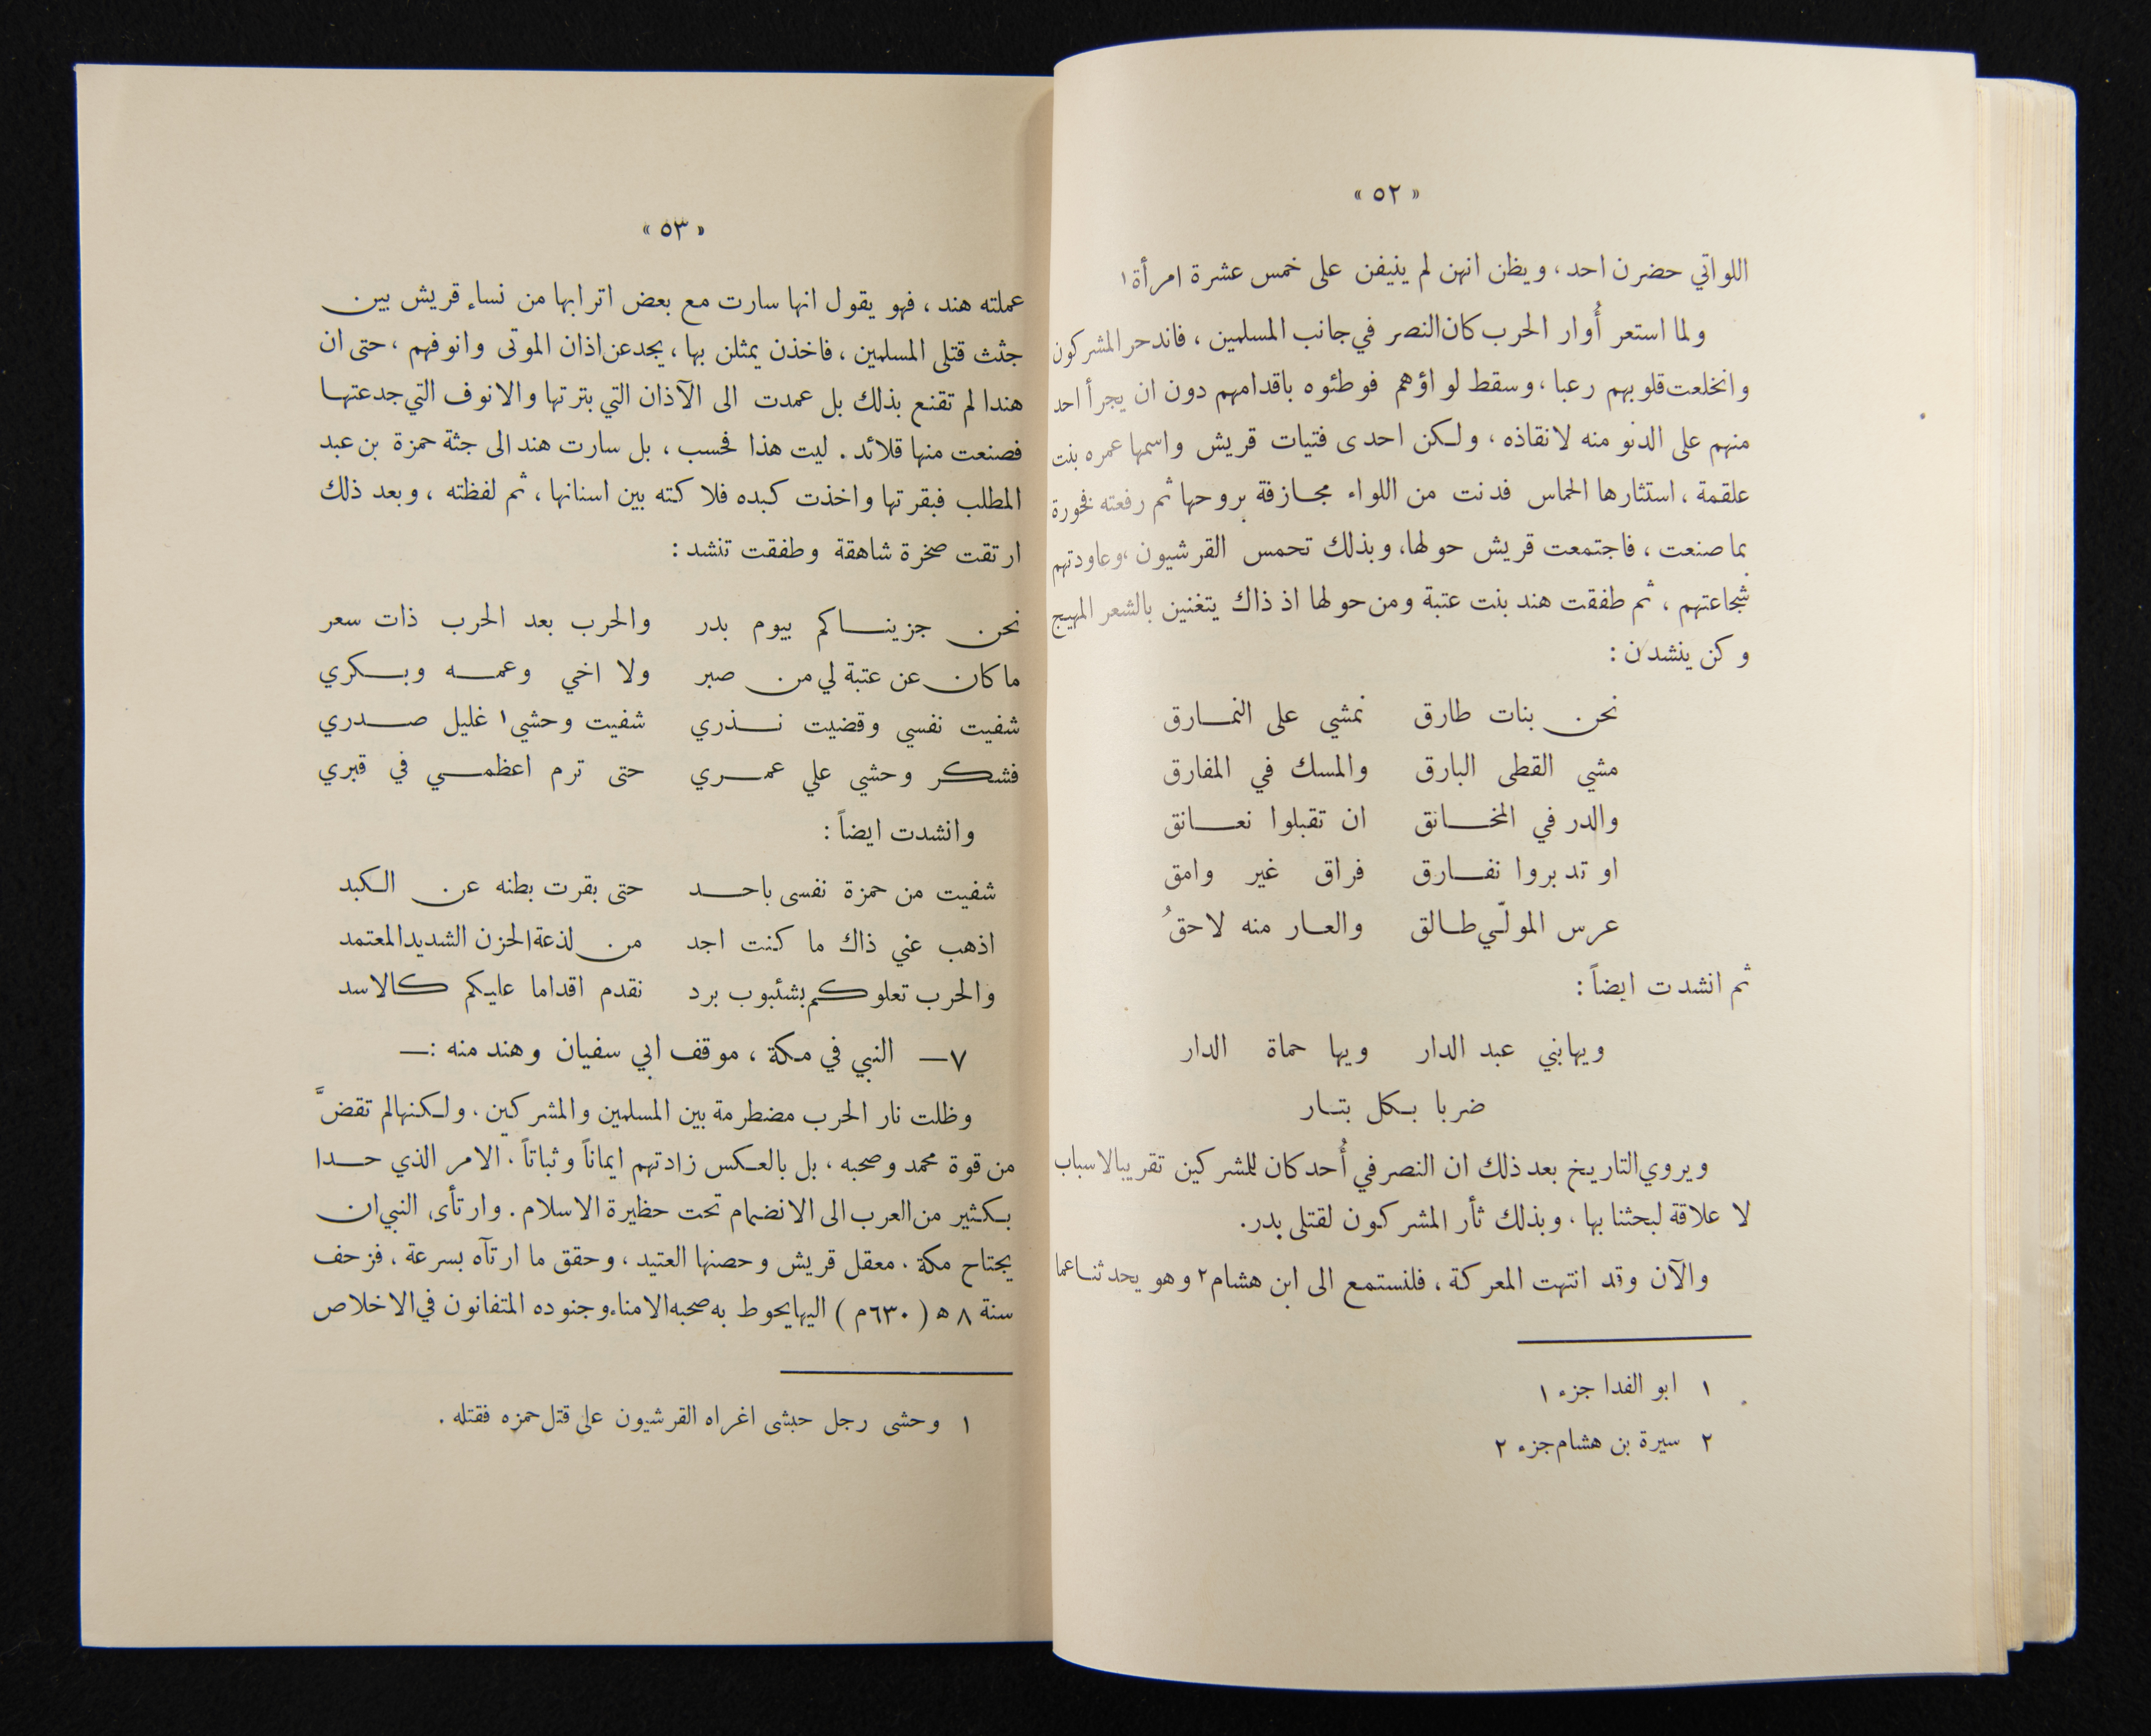 « ٥٢ »
اللواتي حضرن احد ، ويظن انهن لم ينيفن على خمس عشرة امرأة١
ولما استعر أُوار الحرب كان النصر في جانب المسلمين ، فاندحر المشركون
وانخلعت قلوبهم رعبا ، وسقط لواؤهم فوطئوه باقدامهم دون ان يجرأ احد
منهم على الدنو منه لانقاذه ، ولكن احدى فتيات قريش واسمها عمره بنت
علقمة ، استثارها الحماس فدنت من اللواء مجازفة بروحها ثم رفعته فخورة
بما صنعت ، فاجتمعت قريش حولها، وبذلك تحمس القرشيون ،وعاودتهم
شجاعتهم ، ثم طفقت هند بنت عتبة ومن حولها اذ ذاك يتغنين بالشعر المهيج
وكن ينشدن :
نحن بنات طارق نمشي على النمارق
مشي القطى البارق والمسك في المفارق
والدر في المخانق ان تقبلوا نعانق
او تدبروا نفارق فراق غير وامق
عرس المولّي طالق والعار منه لاحقُ
ثم انشدت ايضاً :
ويها بني عبد الدار ويها حماة الدار
ضربا بكل بتار
ويروي التاريخ بعد ذلك ان النصر في أُحد كان للمشركين تقريبا لاسباب
لا علاقة لبحثنا بها ، وبذلك ثأر المشركون لقتلى بدر.
والآن وقد انتهت المعركة ، فلنستمع الى ابن هشام٢ وهو يحدثنا عما
١ ابو الفدا جزء ١
٢ سيرة بن هشام جزء ٢
« ٥٣ »
عملته هند ، فهو يقول انها سارت مع بعض اترابها من نساء قريش بين
جثث قتلى المسلمين ، فاخذن يمثلن بها ، يجدعن اذان الموتى وانوفهم ، حتى ان
هندا لم تقنع بذلك بل عمدت الى الآذان التي بترتها والانوف التي جدعتها
فصنعت منها قلائد . ليت هذا فحسب ، بل سارت هند الى جثة حمزة بن عبد
المطلب فبقرتها واخذت كبده فلاكته بين اسنانها ، ثم لفظته ، وبعد ذلك
ارتقت صخرة شاهقة وطفقت تنشد :
نحن جزيناكم بيوم بدر والحرب بعد الحرب ذات سعر
ما كان عن عتبة لي من صبر ولا اخي وعمه وبكري
شفيت نفسي وقضيت نذري شفيت وحشي١ غليل صدري
فشكر وحشي علي عمري حتى ترم اعظمي في قبري
وانشدت ايضاً :
شفيت من حمزة نفسى باحد حتى بقرت بطنه عن الكبد
اذهب عني ذاك ما كنت اجد من لذعة الحزن الشديد المعتمد
والحرب تعلوكم بشئبوب برد نقدم اقداما عليكم كالاسد
٧— النبي في مكة ، موقف ابي سفيان وهند منه :—
وظلت نار الحرب مضطرمة بين المسلمين والمشركين ، ولكنها لم تقضَّ
من قوة محمد وصحبه ، بل بالعكس زادتهم ايماناً وثباتاً ، الامر الذي حدا
بكثير من العرب الى الانضمام تحت حظيرة الاسلام . وارتأى النبي ان
يجتاح مكة ، معقل قريش وحصنها العتيد ، وحقق ما ارتآه بسرعة ، فزحف
سنة ٨ ه ( ٦٣٠م ) اليها يحوط به صحبه الامناء وجنوده المتفانون في الاخلاص
١ وحشى رجل حبشى اغراه القرشيون على قتل حمزه فقتله .